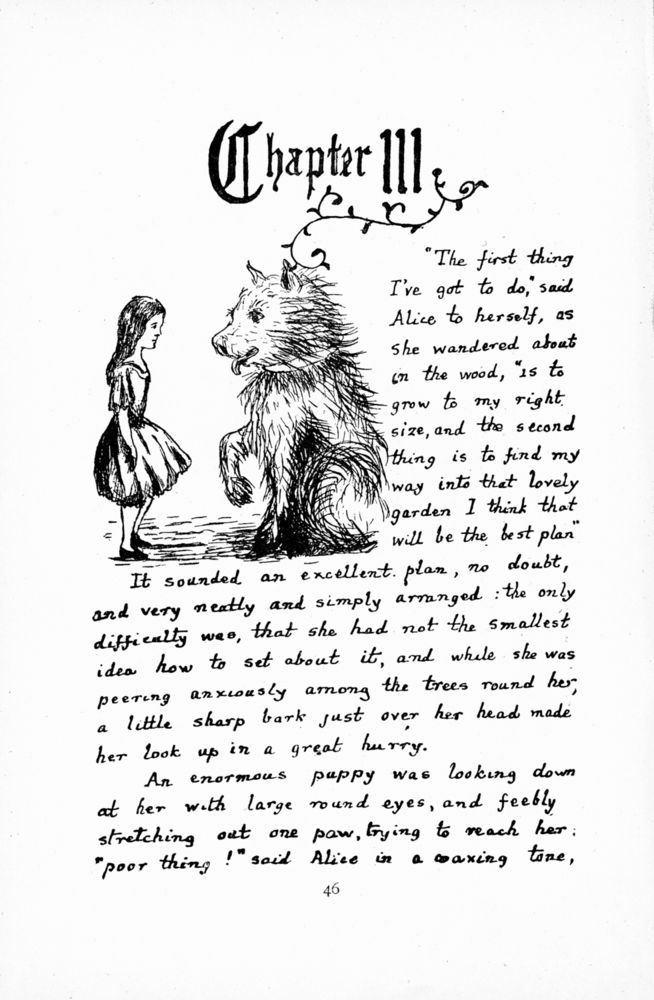 Chapter III
"The first thing
I've got to do," said
Alice to herself, as
she wandered about
in the wood, "is to
grow to my right
size, and the second
thing is to find my
way into that lovely
garden I think that
will be the best plan"
It sounded an excellent plan, no doubt,
and very neatly and simply arranged : the only
difficulty was, that she had not the smallest
idea how to set about it, and while she was
peering anxiously among the trees round her,
a little sharp bark just over her head made
her look up in a great hurry.
An enormous puppy was looking down
at her with large round eyes, and feebly
stretching out one paw, trying to reach her:
"poor thing!" said Alice in a coaxing tone,
46